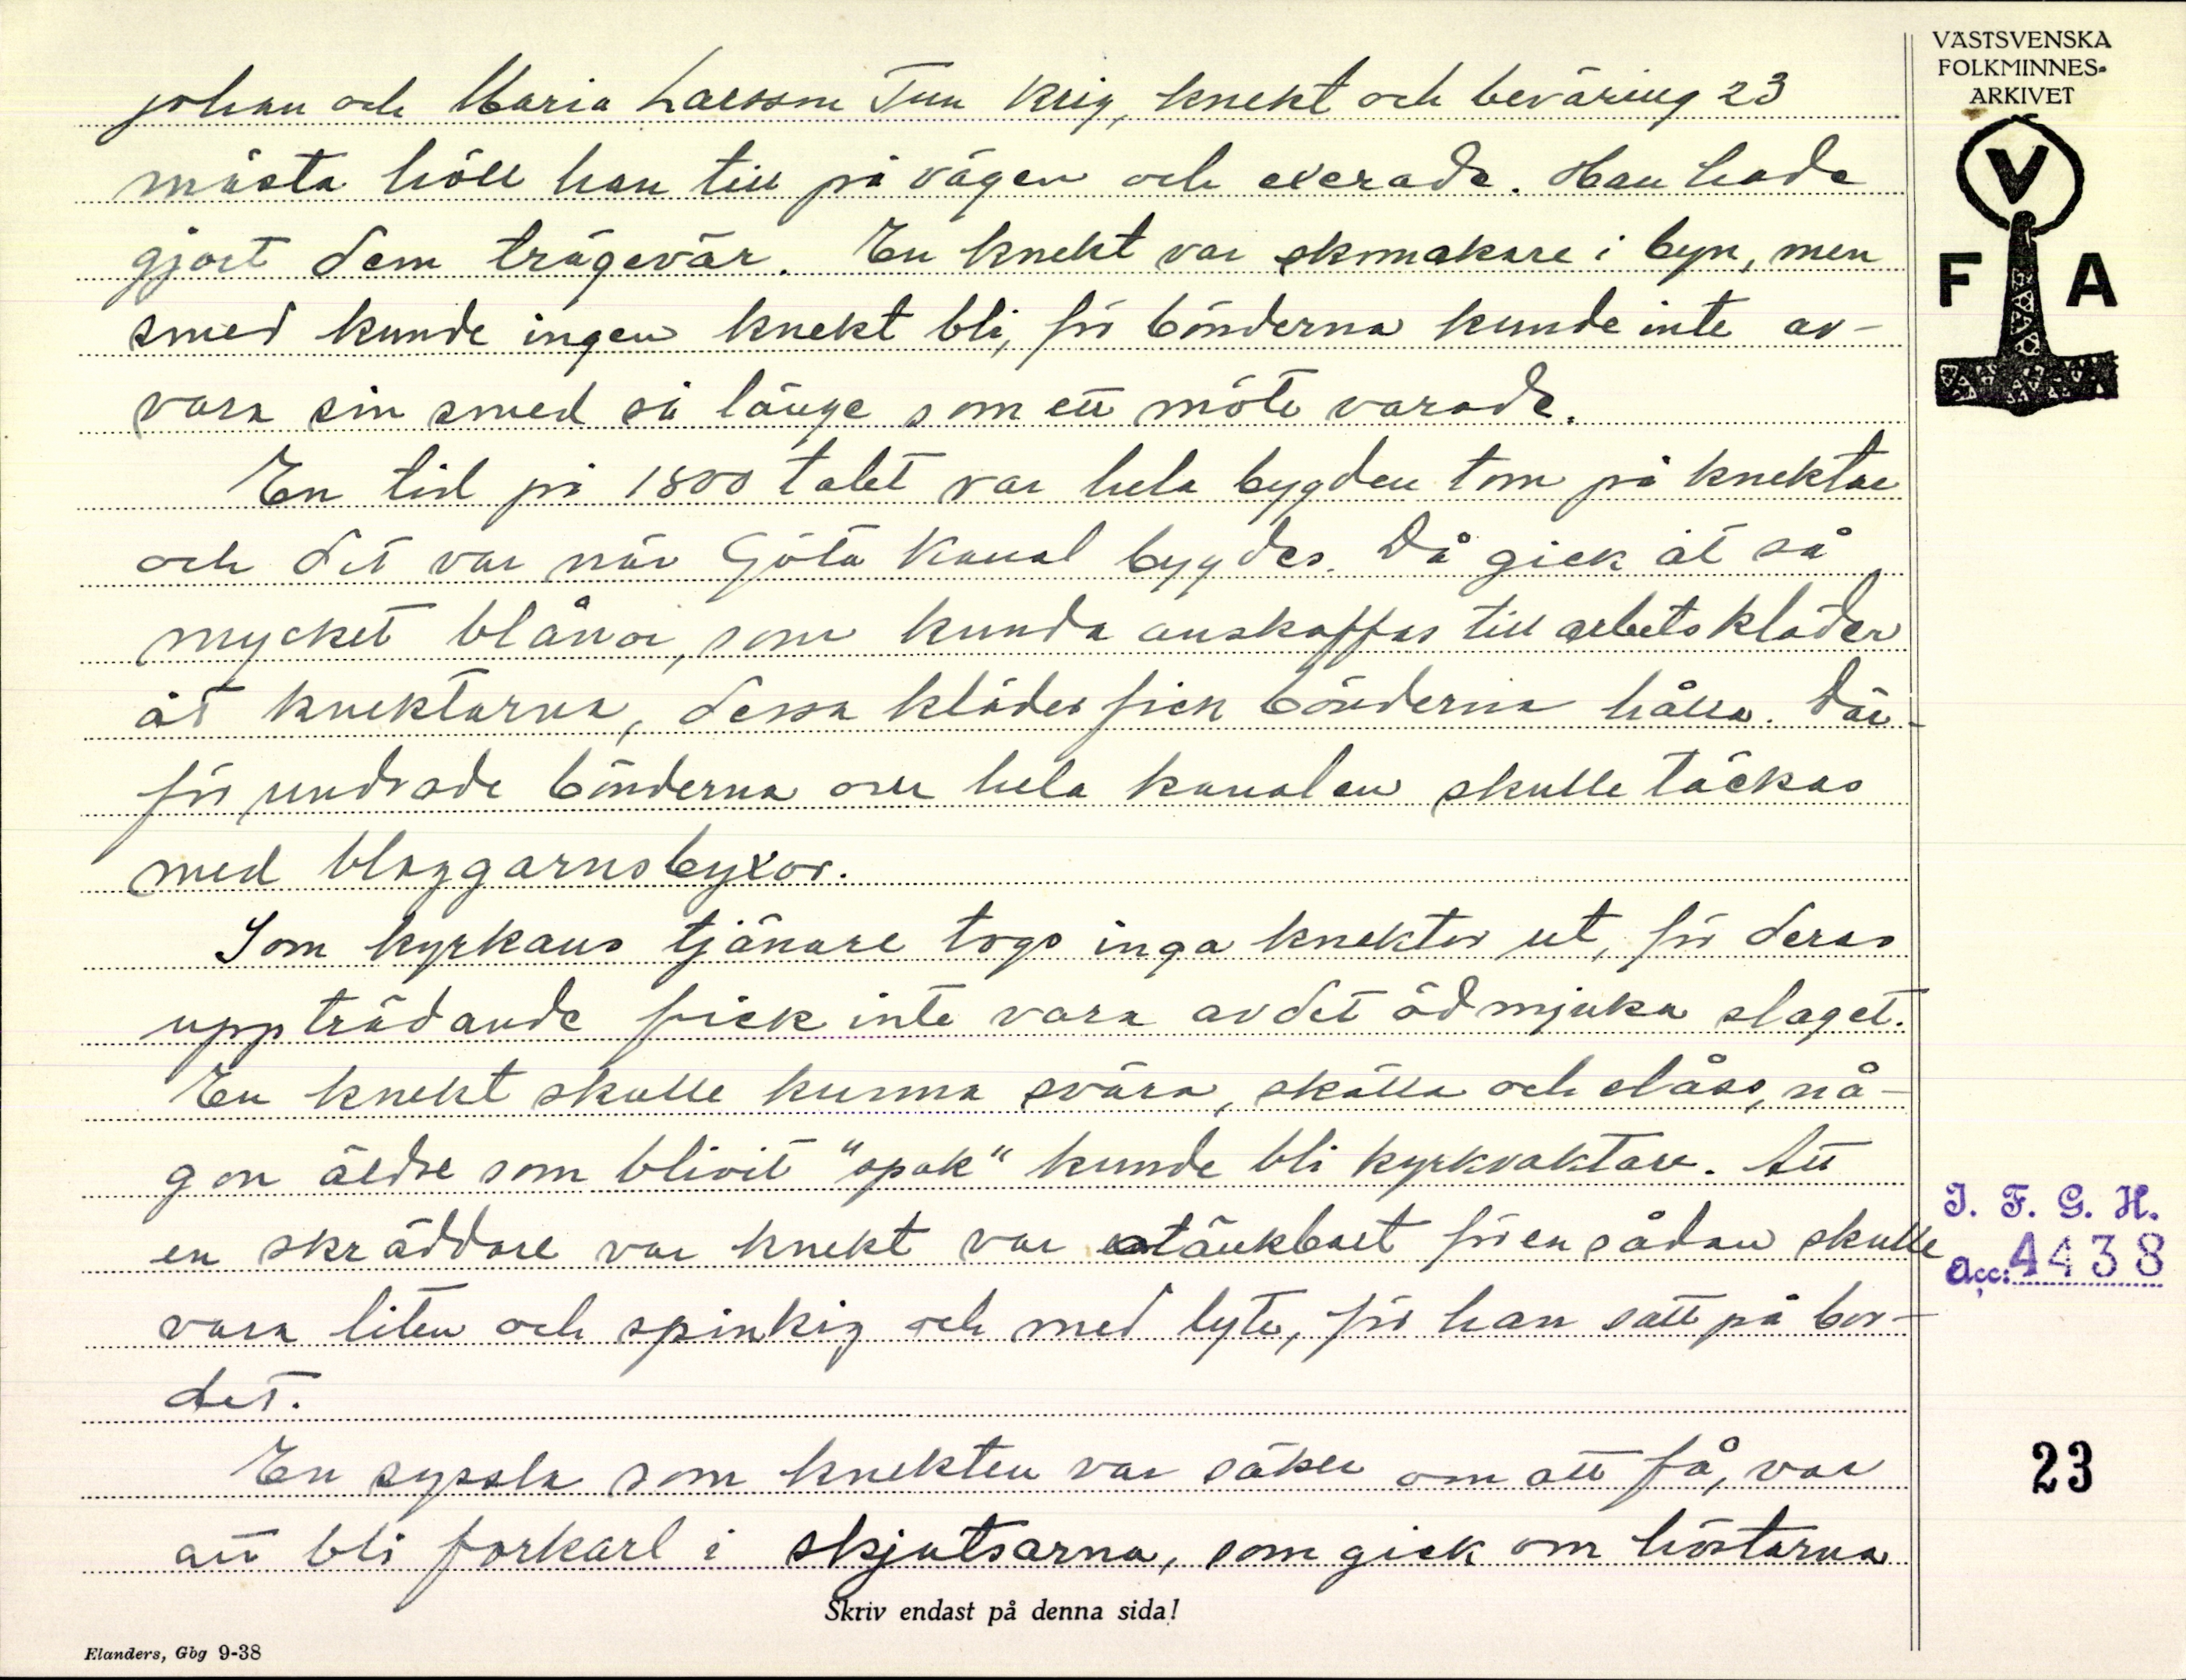 VÄSTSVENSKA
FOLKMINNES-
ARKIVET
V
F A
Johan och Maria Larsson Tun Krig, knekt och beväring 23
mästa höll han till på vägen och exerade. Han hade
gjort dem trägevär. En knekt var skomakare i byn, men
smed kunde ingen knekt bli, för bönderna kunde inte av-
vara sin smed så länge som ett möte varade.
En tid på 1800 talet var hela bygden tom på knektar
och det var när Göta Kanal bygdes. Då gick åt så
mycket blånor, som kunda anskaffas till arbetskläder
åt knektarna, dessa kläder fick bönderna hålla. Där-
för undrade bönderna om hela kanalen skulle täckas
med blaggarnsbyxor.
Som kyrkans tjänare togs inga knektar ut, för deras
uppträdande fick inte vara av det ödmjuka slaget.
En knekt skulle kunna svära, skälla och slåss, nå-
gon äldre som blivit "spak" kunde bli kyrkvaktare. Att
en skräddare var knekt var otänkbart för en sådan skulle
vara liten och spinkig och med lyte, för han satt på bor-
det.
En syssla som knekten var säker om att få, var
att bli forkarl i skjutsarna, som gick om höstarna
I. F. G. H.
Acc: 4438
23
Skriv endast på denna sida!
Elanders, Gbg 9-38